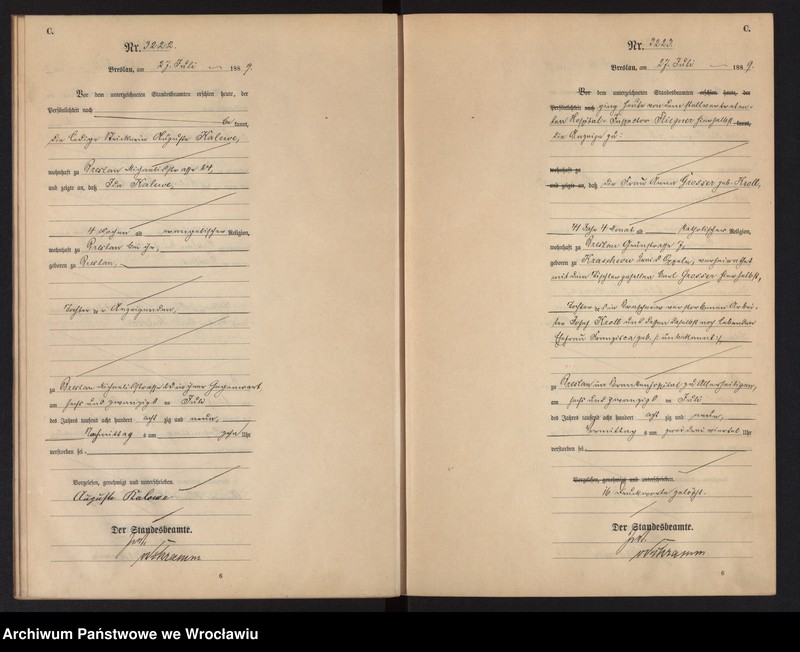 C.
Nr. 3222.
Breslau, am 27. Juli 1889.
Vor dem unterzeichneten Standesbeamten erschien heute, der
Persönlichkeit nach
kannt,
die ledige Auguste Kalewe,
wohnhaft zu Breslau Michaelisstraße 24,
und zeigte an, daß Ida Kalewe,
4 Wochen alt evangelischer Religion,
wohnhaft zu Breslau bei ihr,
geboren zu Breslau,
Tochter der Anzeigenden,
zu Breslau Michaelisstraße in ihrer Gegenwart
am sechs und zwanzigsten Juli
des Jahres tausend acht hundert achtzig und neun,
Nachmittag s um zehn Uhr
verstorben sei.
Vorgelesen, genehmigt und unterschrieben.
Auguste Kalewe
Der Standesbeamte.
6
C.
Nr. 3223.
Breslau, am 27. Juli 1889.
Vor dem unterzeichneten Standesbeamten erschien heute, der
Persönlichkeit nach ging heute von dem stellvertreten-
den Hospital-Inspector hierselbst kannt,
die Anzeige zu:
wohnhaft zu
und zeigte an, daß die Frau Anna Grosser geb. Kroll,
41 Jahr 4 Monat alt katholischer Religion,
wohnhaft zu Breslau 7,
geboren zu Krascheow Kreis Oppeln, verheirathet
mit dem Tischlergesellen Carl Grosser hierselbst,
Tochter des in verstorbenen Arbei-
ters Josef Kroll und dessen daselbst noch lebenden
Ehefrau Franziska geb. (: unbekannt :),
zu Breslau im Krankenhospital zu Allerheiligen,
am sechs und zwanzigsten Juli
des Jahres tausend acht hundert achtzig und neun,
Vormittag s um drei viertel Uhr
verstorben sei.
Vorgelesen, genehmigt und unterschrieben.
16 Druckworte gelöscht.
Der Standesbeamte.
6
Archiwum Państwowe we Wrocławiu